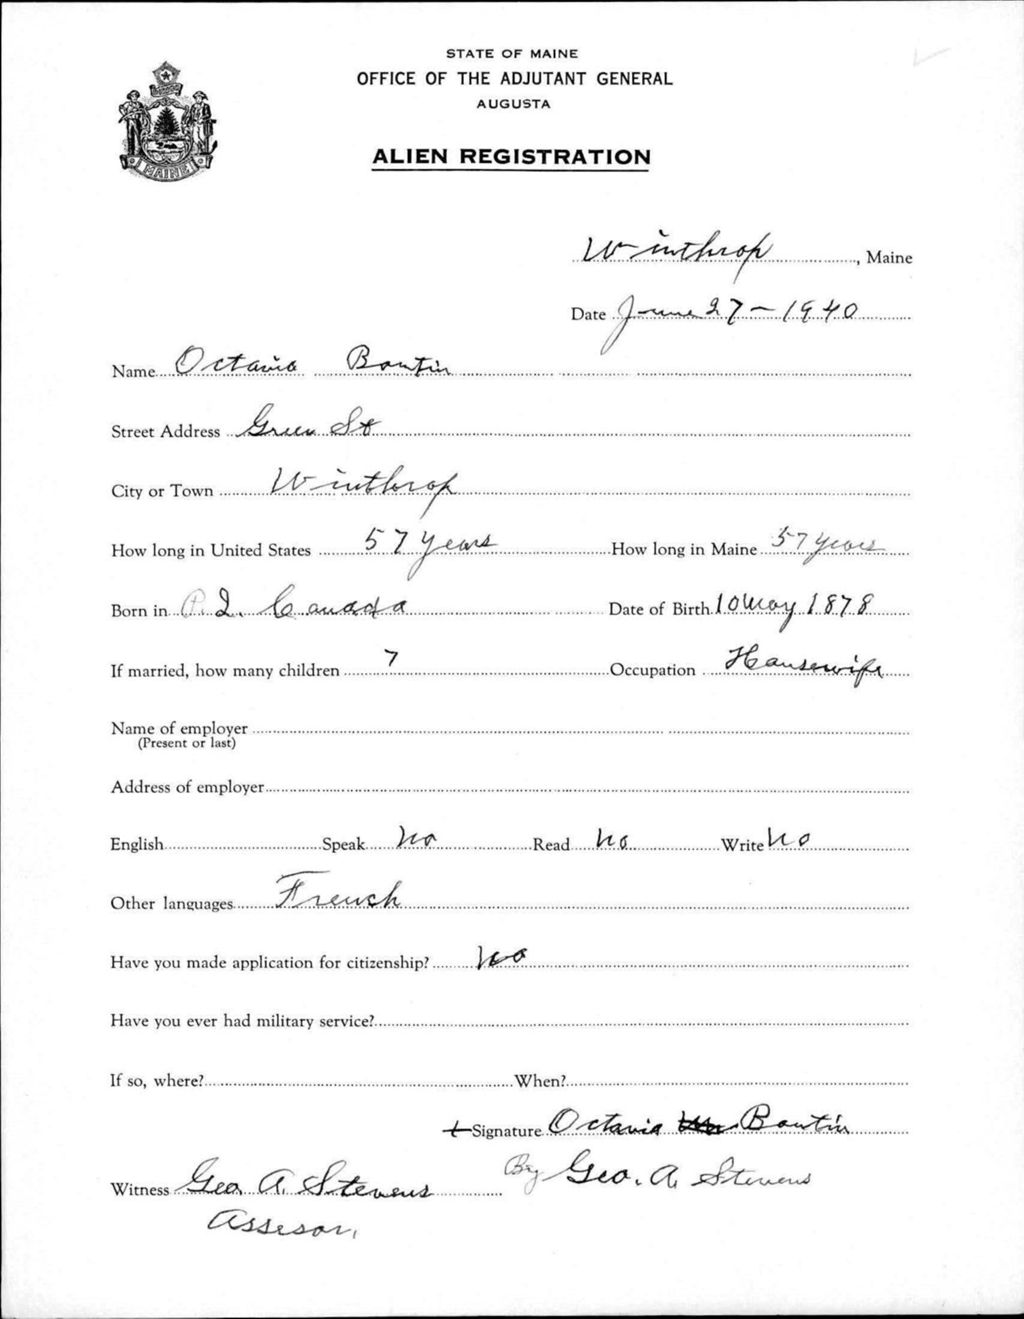 STATE OF MAINE
OFFICE OF THE ADJUTANT GENERAL
AUGUSTA
ALIEN REGISTRATION
MAINE
Winthrop, Maine
Date June 27 - 1940
Name Octavia Boutin
Street Address Green St
City or Town Winthrop
How long in United States 57 years How long in Maine 57 years
Born in P.Q. Canada Date of Birth 10 May 1878
If married, how many children 7 Occupation Housewife
Name of employer
(Present or last)
Address of employer
English Speak no Read no Write no
Other languages French
Have you made application for citizenship? no
Have you ever had military service?
If so, where? When?
Signature Octavia Boutin
Witness Geo. A. Stevens By Geo. A. Stevens
Assesor,